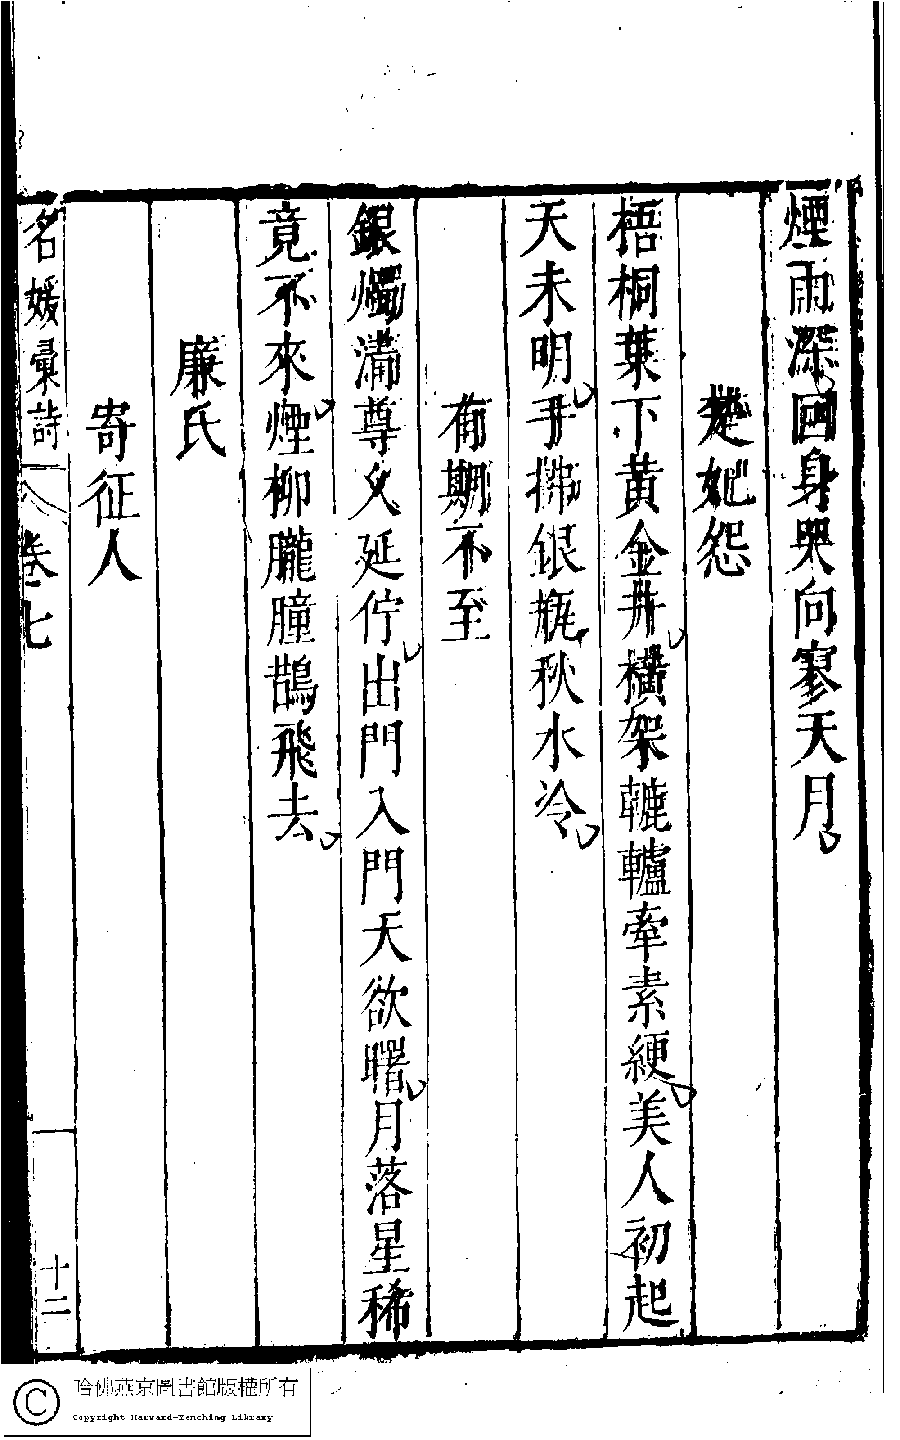 煙雨深回身哭向寥天月
楚妃怨
梧桐葉下黃金井橫架轆轤牽素綆美人初起
天未明手拂銀瓶秋水冷
有期不至
銀燭滿尊乂延佇出門入門天欲曙月落星稀
竟不來煙柳朧朣鵲飛去
廉氏
寄征人
名媛彙詩 卷七 十二
哈佛燕京圖書館版權所有
Copyright Harvard-Yenching Library